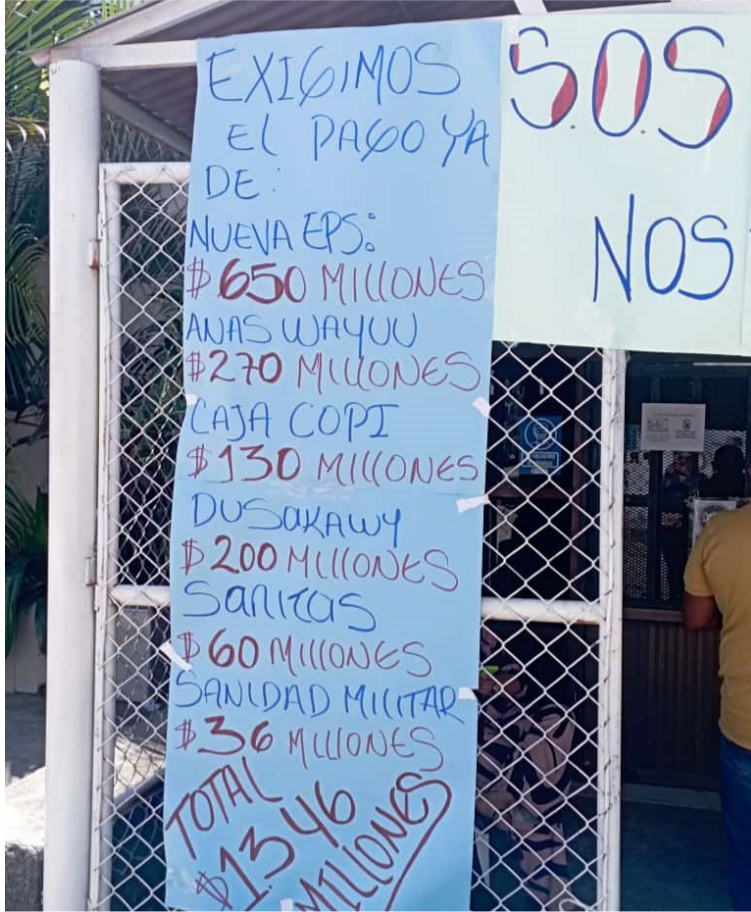 EXIGIMOS
EL PAGO YA
DE:
NUEVA EPS:
$650 MILLONES
ANAS WAYUU
$270 MILLONES
CAJA COPI
$130 MILLONES
DUSAKAWY
$200 MILLONES
SANITAS
$60 MILLONES
SANIDAD MILITAR
$36 MILLONES
TOTAL
$1346
MILLONES
S.O.S
NOS